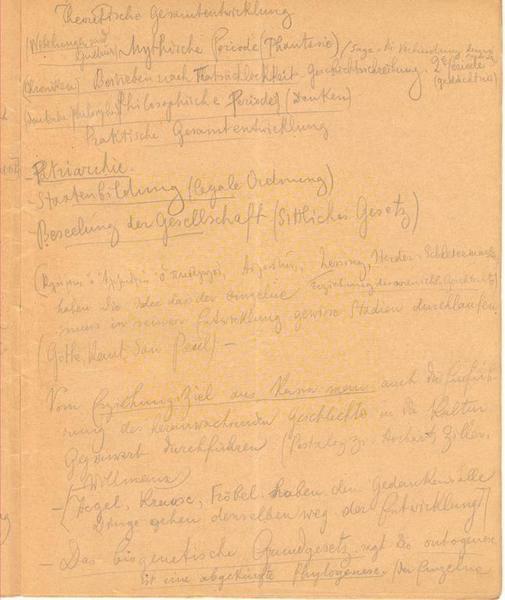 Theoretische Gesamtentwicklung
Mythische Periode (Phantasie)
(Chroniken) Bestreben nach Tatsächlichkeit. Geschichtschreibung. 2e Periode
(Gedächtnis)
Philosophische Periode (Denken)
Praktische Gesamtentwicklung
- Patriarchie.
- Staatenbildung (legale Ordnung)
- Beseelung der Gesellschaft (Sittliches Gesetz)
Lessing, Herder, Schleiermacher
haben die Idee das der einzelne
muss in seiner Entwicklung gewisse Stadien durchlaufen.
(Göthe, Kant, Jean Paul) -
Vom Erziehungsziel aus kann man auch die Einfüh-
rung des heranwachsenden Geschlechts in die Kultur
Gegenwart durchführen (Pestalozzi, Herbart, Ziller,
Willmann)
- (Hegel, Krause, Fröbel haben den Gedanken alle
Dinge gehen denselben Weg der Entwicklung)
- Das biogenetische Grundgesetz sagt die ontogenese
ist eine abgekürzte Phylogenese. Der Einzelne